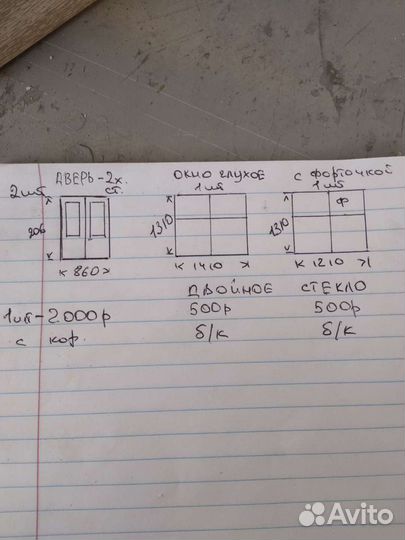 ДВЕРЬ-2х. ст.
2шт
206
< 860 >
ОКНО ГЛУХОЕ
1 шт
1310
< 1410 >
С ФОРТОЧКОЙ
1 шт
Ф
1310
< 1210 >
ДВОЙНОЕ СТЕКЛО
1шт - 2000р
с кор.
500р
б/к
500р
б/к
Avito